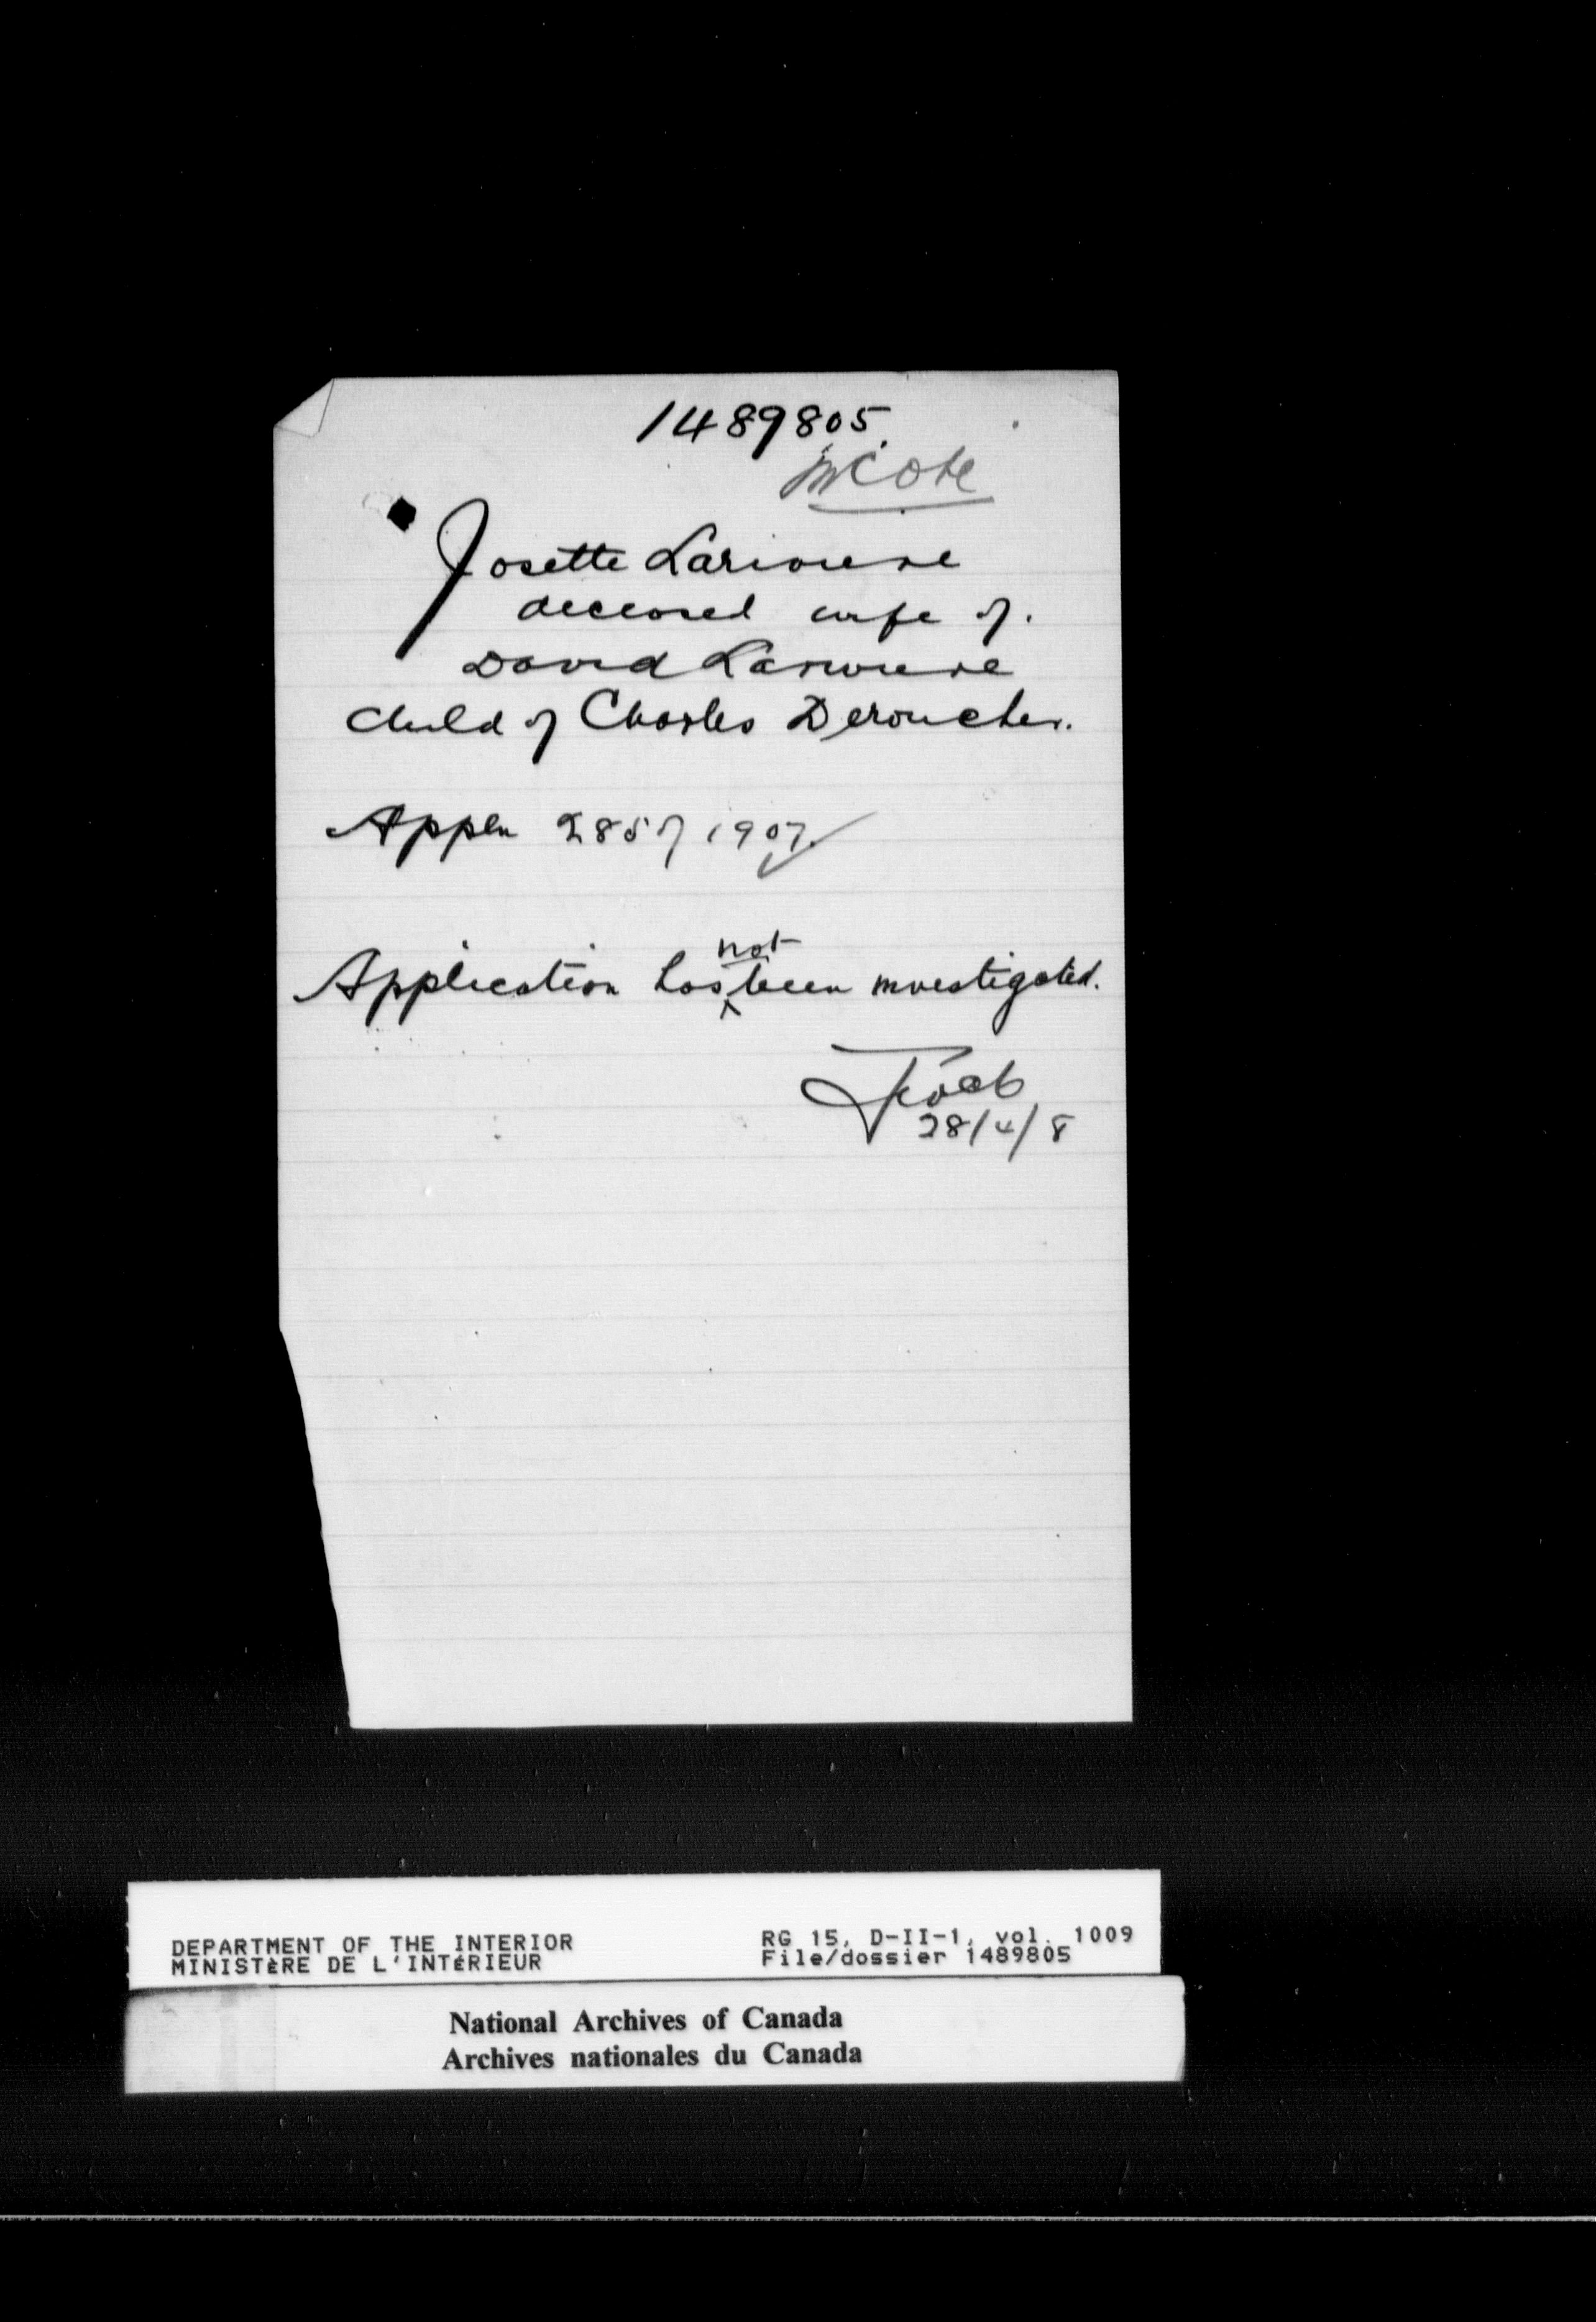 1489805.
Mr Cote
Josette Lariviere
deceased wife of.
David Lariviere
Child of Charles Deroucher.
Appln 285 of 1907.
not
Application has been investigated.
28/4/8
DEPARTMENT OF THE INTERIOR
MINISTÈRE DE L'INTÉRIEUR
RG 15, D-II-1, vol. 1009
File/dossier 1489805
National Archives of Canada
Archives nationales du Canada